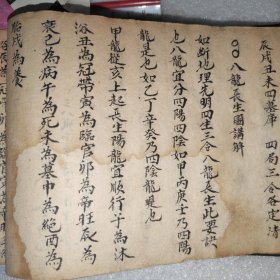 辰戌丑未四墓庫　四局三合各定清
○○八龍長生圖講解
如斷地理先明四生三合八龍長生此要訣
也八龍宜分四陽四陰如甲丙庚壬乃四陽
龍是也如乙丁辛癸乃四陰龍是也
甲龍從亥上起長生陽龍宜順行子為沐
浴丑為冠帶寅為臨官卯為帝旺辰為
衰巳為病午為死未為墓申為絕酉為
胎戌為養